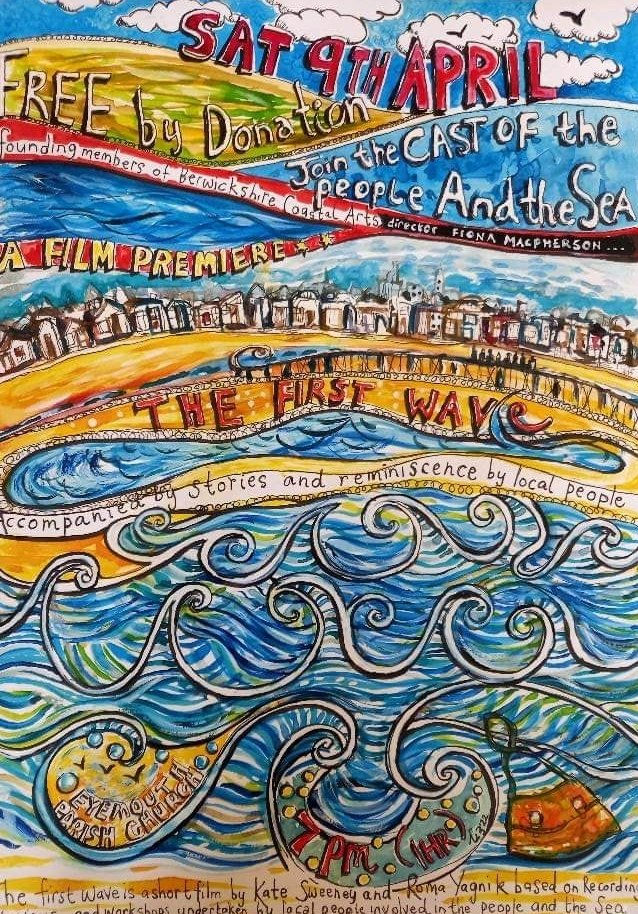 SAT 9TH APRIL
FREE by Donation
founding members of Berwickshire Coastal Arts
Join the CAST OF the
people And the Sea
director FIONA MACPHERSON ...
A FILM PREMIERE
THE FIRST WAVE
accompanied by stories and reminiscence by local people
EYEMOUTH
PARISH CHURCH
7 PM (1HR)
The first Wave is a short film by Kate Sweeney and Roma Yagnik based on Recording
and workshops undertaken by local people involved in the people and the Sea